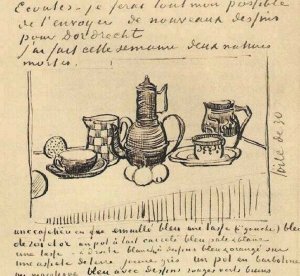 Ecoutes - je ferai tout mon possible
de t'envoyer de nouveaux dessins
pour Dordrecht
J'ai fait cette semaine deux natures
mortes.
toile de 30
une cafetière en fer émaillé bleu une tasse (à gauche) bleu
de roi et or un pot à lait carrelé bleu pâle & blanc
une tasse - à droite blanche dessins bleu & orangé sur
une assiette de terre jaune gris un pot en barbotine
ou majolique bleu avec dessins rouges verts bruns